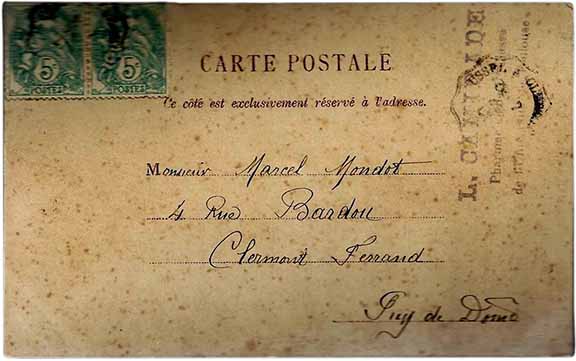 5c 5c
POSTES POSTES
CARTE POSTALE
Ce côté est exclusivement réservé à l'adresse.
Monsieur Marcel Mondot
4 Rue Bardou
Clermont Ferrand
Puy de Dome
Pharmacien